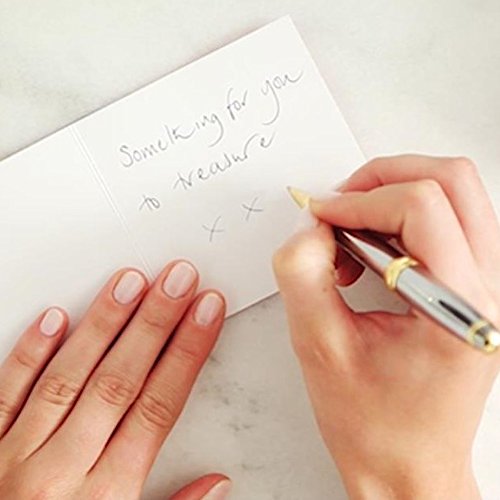 Something for you
to treasure
x x